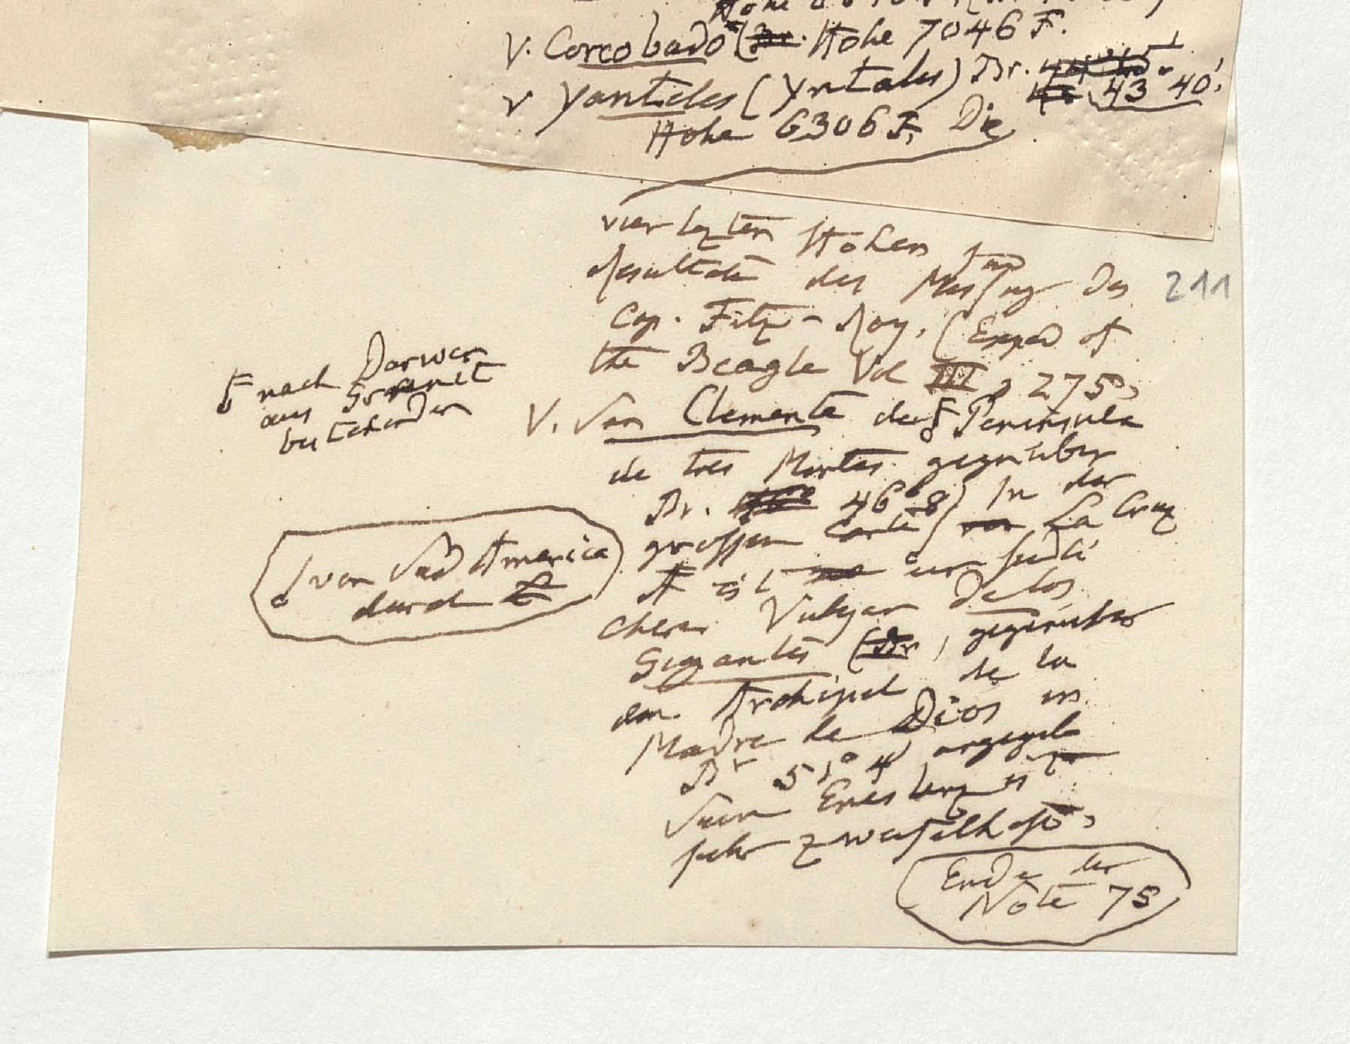 V. Corcobado (Br. Höhe 7046 F.
V Yanteles (Yntales) Br. 43° 40'.
Höhe 6306 F. Die
vier lezten Höhen sind
Resultate der Messung des
Cap. Fitz-Roy. (Exped of
the Beagle Vol III p 275.
V. San Clemente der Peninsula
de tres Montes gegenüber
Br. 46° 8') In der
grossen Carte von La Cruz
ist ein südli
cher Vulkan de los
Gigantes (Br, gegenüber
dem Archipel de la
Madre de Dios in
Br 51° 4' angegeb
Seine Existenz ist
sehr zweifelhaft.
Ende der
Note 75
211
nach Darwin
aus Granit
bestehenden
von Süd America
durch